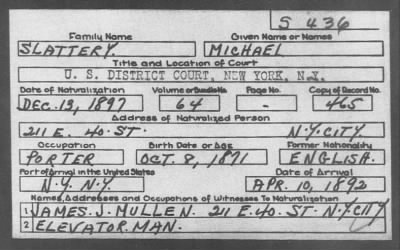 S 436
Family Name Given Name or Names
SLATTERY MICHAEL
Title and Location of Court
U. S. DISTRICT COURT, NEW YORK, N.Y.
Date of Naturalization Volume or Bundle No. Page No. Copy of Record No.
DEC. 13, 1897 64 - 465
Address of Naturalized Person
211 E. 40. ST. N.Y. CITY.
Occupation Birth Date or Age Former Nationality
PORTER OCT. 8, 1871 ENGLISH.
Port of Arrival in the United States Date of Arrival
N.Y. N.Y. APR. 10, 1892
Names, Addresses and Occupations of Witnesses To Naturalization
1 JAMES. J. MULLEN. 211 E. 40. ST. N.Y. CITY
2 ELEVATOR. MAN.